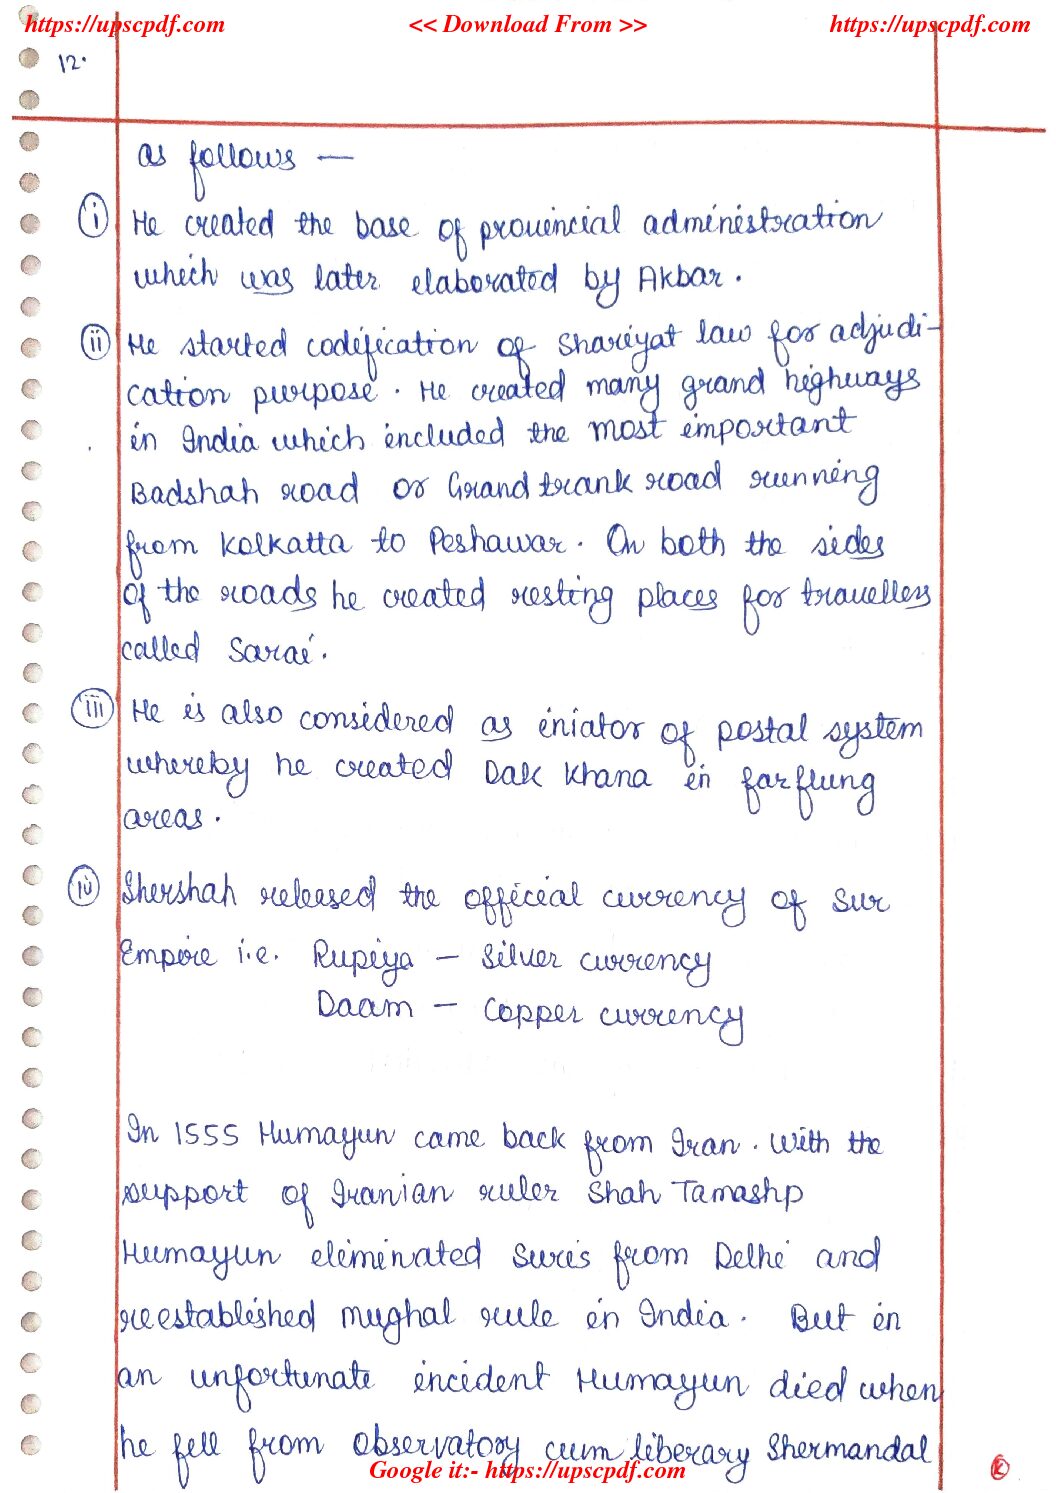 https://upscpdf.com << Download From >> https://upscpdf.com
12.
as follows —
(i) He created the base of provincial administration
which was later elaborated by Akbar.
(ii) He started codification of Shariyat law for adjudi-
cation purpose. He created many grand highways
in India which included the most important
Badshah road or Grand trank road running
from Kolkatta to Peshawar. On both the sides
of the roads he created resting places for travellers
called Sarai.
(iii) He is also considered as iniator of postal system
whereby he created Dak Khana in farflung
areas.
(iv) Shershah released the official currency of Sur
Empire i.e. Rupiya — Silver currency
Daam — Copper currency
In 1555 Humayun came back from Iran. With the
support of Iranian ruler Shah Tamashp
Humayun eliminated Suris from Delhi and
reestablished mughal rule in India. But in
an unfortunate incident Humayun died when
he fell from Observatory cum liberary Shermandal
Google it:- https://upscpdf.com